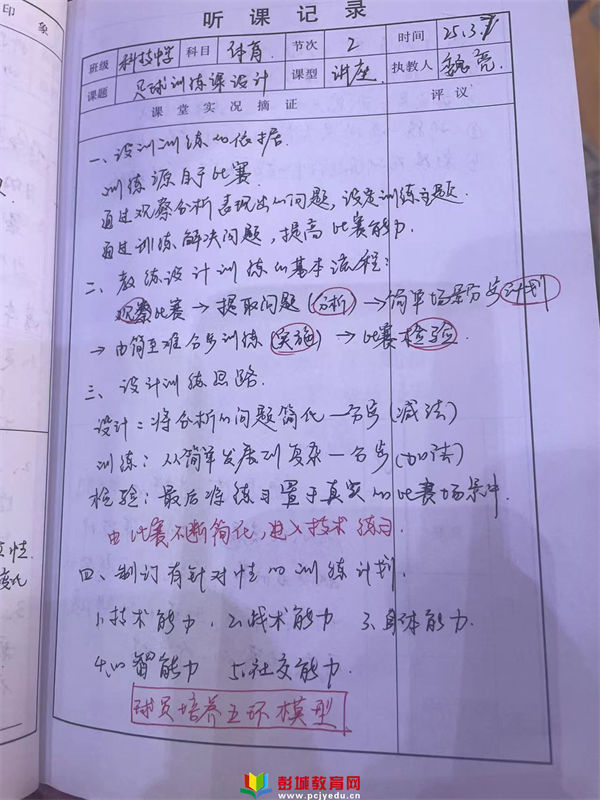 印 象
听 课 记 录
班级 科技中学 科目 体育 节次 2 时间 25.3.
课题 足球训练课设计 课型 讲座 执教人 魏亮
课 堂 实 况 摘 证 评 议
一、设训训练的依据.
训练源自于比赛.
通过观察分析表现出的问题,设定训练主题.
通过训练解决问题,提高比赛能力.
二、教练设计训练的基本流程:
观察比赛→提取问题(分析)→简单场景分步计划
→由简至难分步训练(实施)→比赛检验.
三、设计训练思路.
设计:将分析的问题简化一分步(减法)
训练:从简单发展到复杂一分步(加法)
检验:最后将练习置于真实的比赛场景中.
由比赛不断简化,进入技术练习.
四、制订有针对性的训练计划.
1.技术能力. 2.战术能力 3.身体能力.
4.心智能力 5.社交能力.
球员培养五环模型
彭城教育网
www.pcjyedu.cn